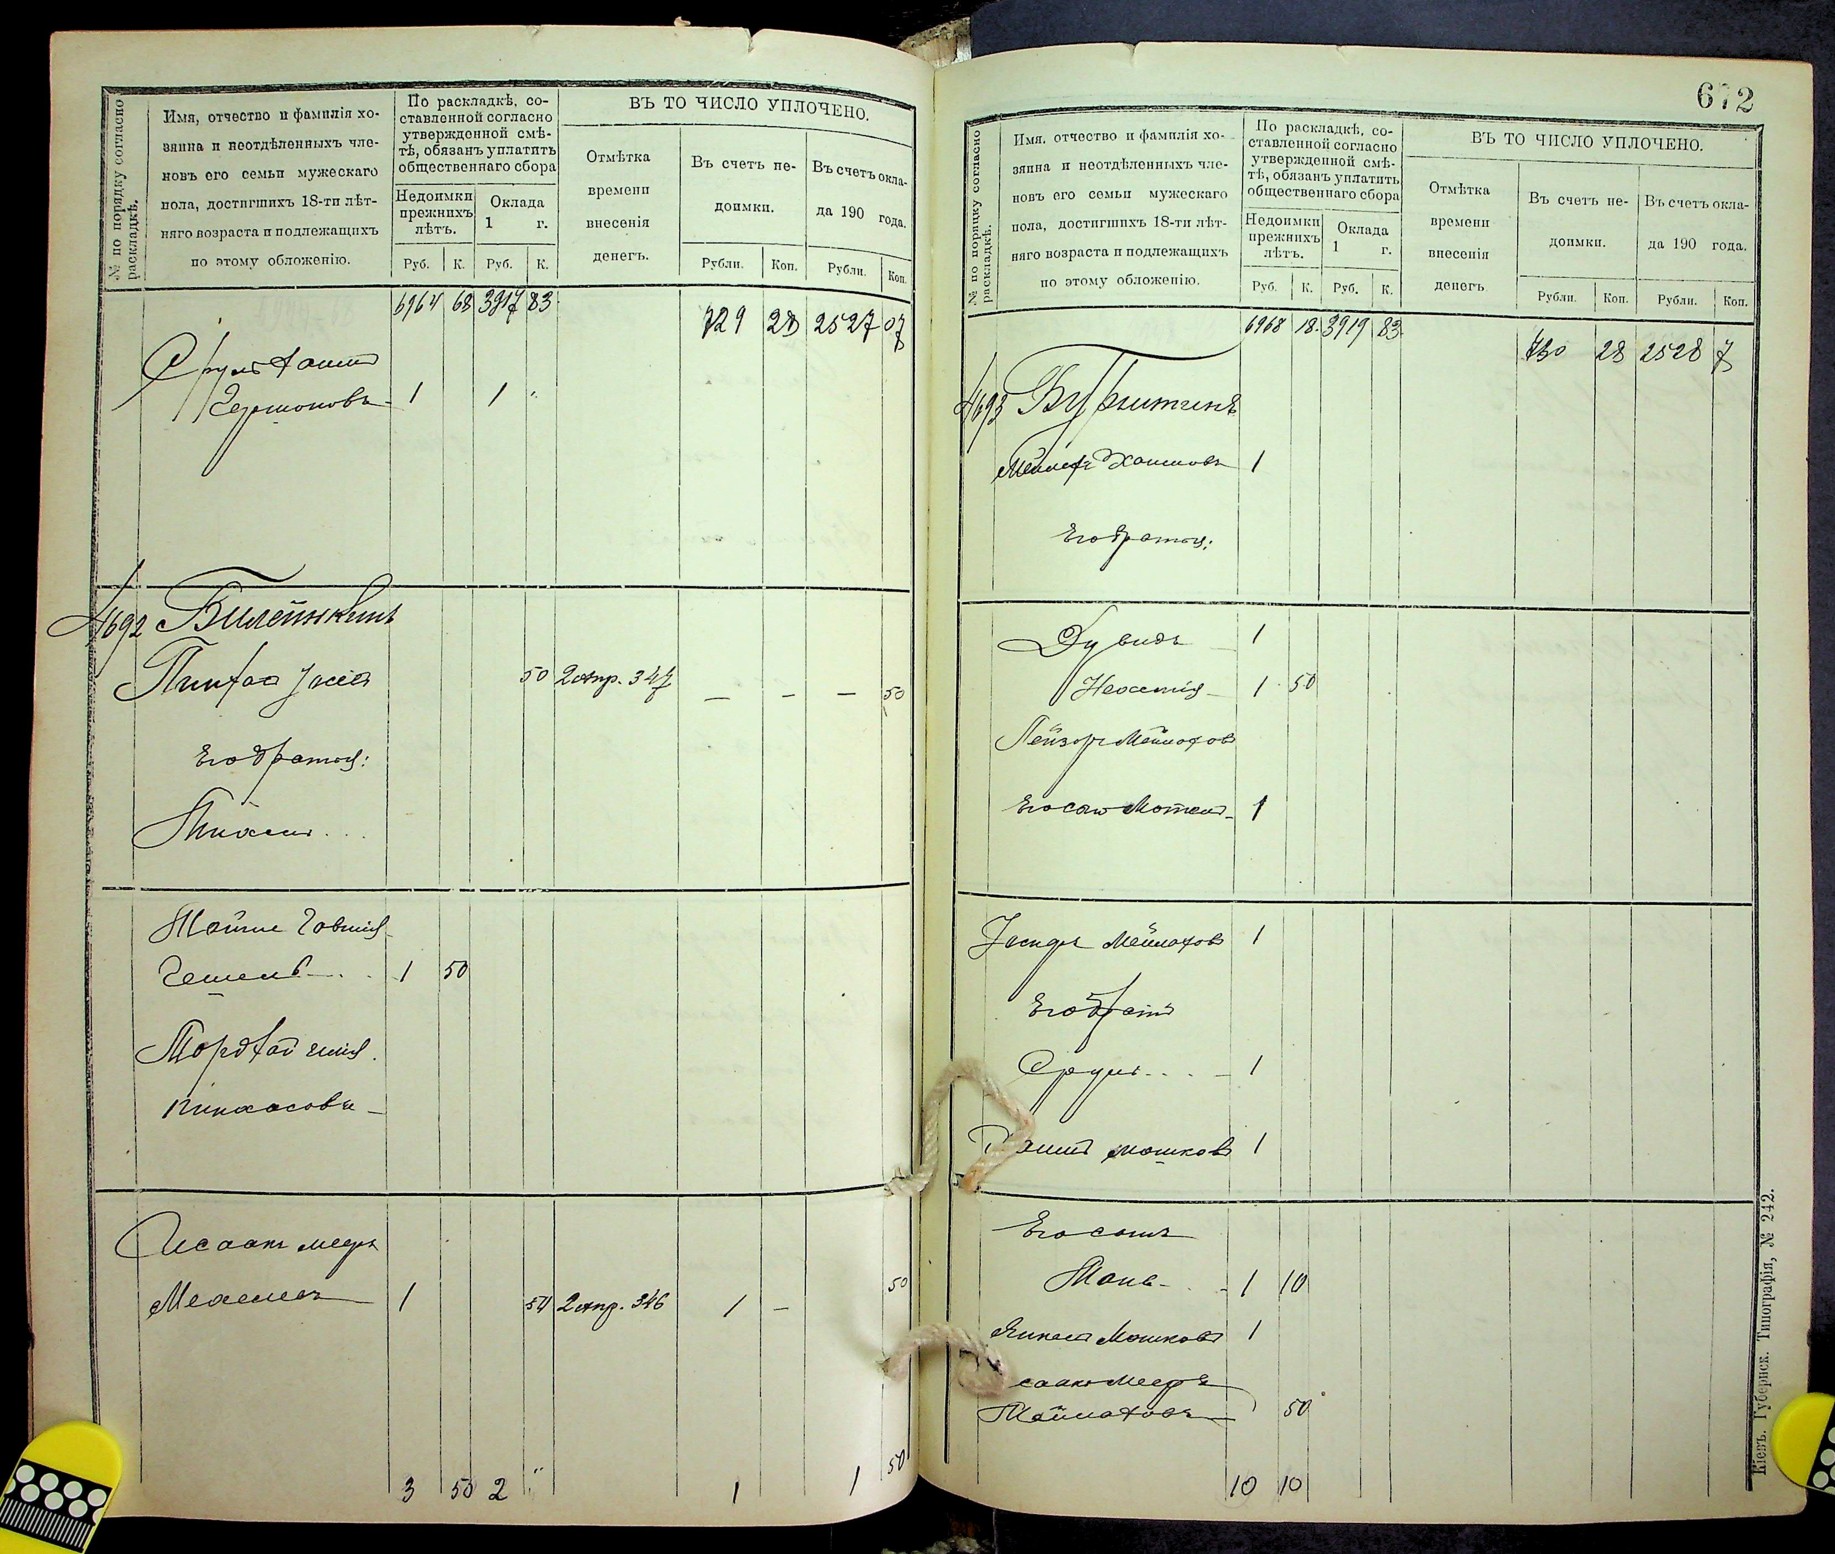 № по порядку согласно раскладкѣ.
Имя, отчество и фамилія хо-
зяина и неотдѣленныхъ чле-
новъ его семьи мужескаго
пола, достигшихъ 18-ти лѣт-
няго возраста и подлежащихъ
по этому обложенію.
По раскладкѣ, со-
ставленной согласно
утвержденной смѣ-
тѣ, обязанъ уплатить
общественнаго сбора
Недоимки
прежнихъ
лѣтъ.
Оклада
1 г.
Руб. К. Руб. К.
ВЪ ТО ЧИСЛО УПЛОЧЕНО.
Отмѣтка
времени
внесенія
денегъ.
Въ счетъ не-
доимки.
Въ счетъ окла-
да 190 года.
Рубли. Коп. Рубли. Коп.
6964 68 3917 83 729 28 2527 07
Сруль Хаимъ
Гершоновъ 1 1 "
4692 Билейнкинъ
Пинхас Іосіа 50 2 апр. 347 — — — 50
Его братья:
Михель
Гешель 1 50
Мордхай
Пинхасовъ
Исаакъ Меер
Мехелев 1 50 2 апр. 346 1 — 50
3 50 2 " 1 1 50
672
№ по порядку согласно раскладкѣ.
Имя, отчество и фамилія хо-
зяина и неотдѣленныхъ чле-
новъ его семьи мужескаго
пола, достигшихъ 18-ти лѣт-
няго возраста и подлежащихъ
по этому обложенію.
По раскладкѣ, со-
ставленной согласно
утвержденной смѣ-
тѣ, обязанъ уплатить
общественнаго сбора
Недоимки
прежнихъ
лѣтъ.
Оклада
1 г.
Руб. К. Руб. К.
ВЪ ТО ЧИСЛО УПЛОЧЕНО.
Отмѣтка
времени
внесенія
денегъ
Въ счетъ не-
доимки.
Въ счетъ окла-
да 190 года.
Рубли. Коп. Рубли. Коп.
6968 18 3919 83 730 28 2528 7
4693 Бурштинъ
Мейлехъ Хаимовъ 1
Его братья:
Дувидъ 1
Нехемія 1 50
Лейзоръ Мейлахов
Его сын Мотель 1
Іосифъ Мейлахов 1
Его братъ
Сруль 1
Хаимъ Мошков 1
Его сынъ
1 10
Янкель Мошков 1
Меер
Мейлахов 50
10 10
Кіевъ. Губернск. Типографія, № 242.